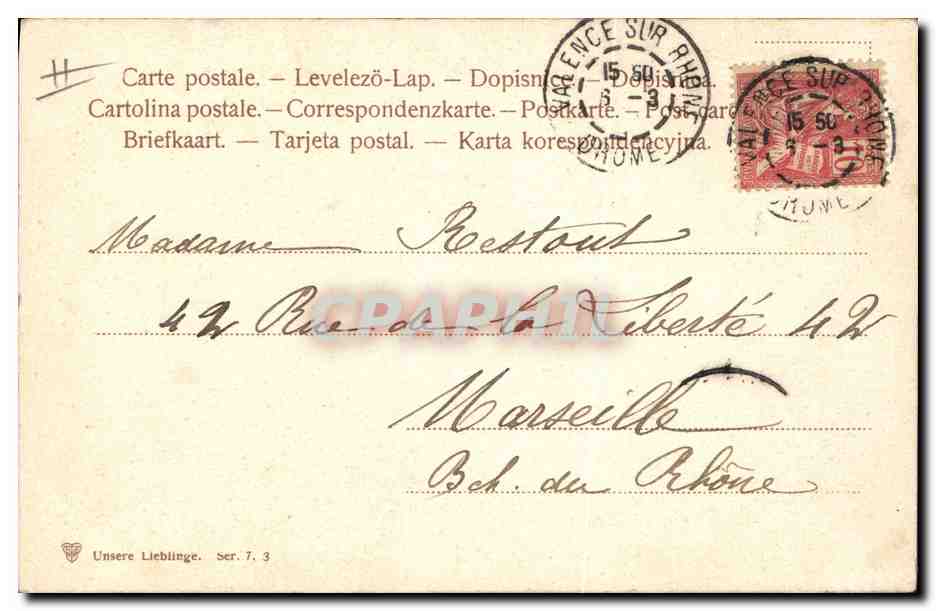 Carte postale. – Levelezö-Lap. – Dopisnice. – Dopisnica.
Cartolina postale. – Correspondenzkarte. – Postkarte. – Post-card
Briefkaart. – Tarjeta postal. – Karta korespondencyjna.
VALENCE SUR RHONE
15 50
6 – 3
DROME
VALENCE SUR RHONE
15 50
6 – 3
DROME
10
Madame Restout
42 Rue de la Liberté 42
CPAPHIL
Marseille
Bch. du Rhône
Unsere Lieblinge. Ser. 7. 3